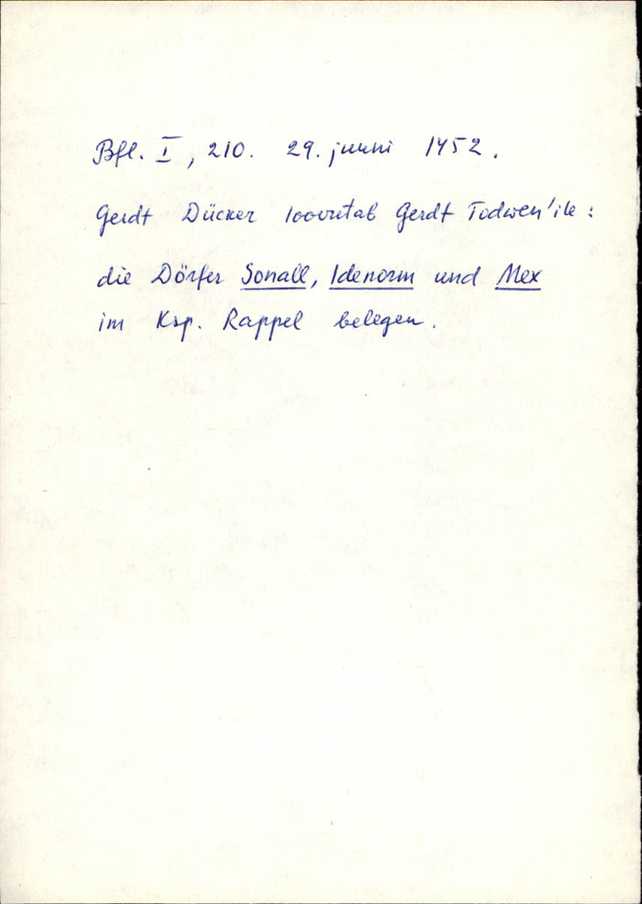 Bfl. I, 210. 29. juuni 1452.
Gerdt Dücker loovutab Gerdt Todwen'ile:
die Dörfer Sonall, Idenorm und Mex
im Ksp. Rappel belegen.